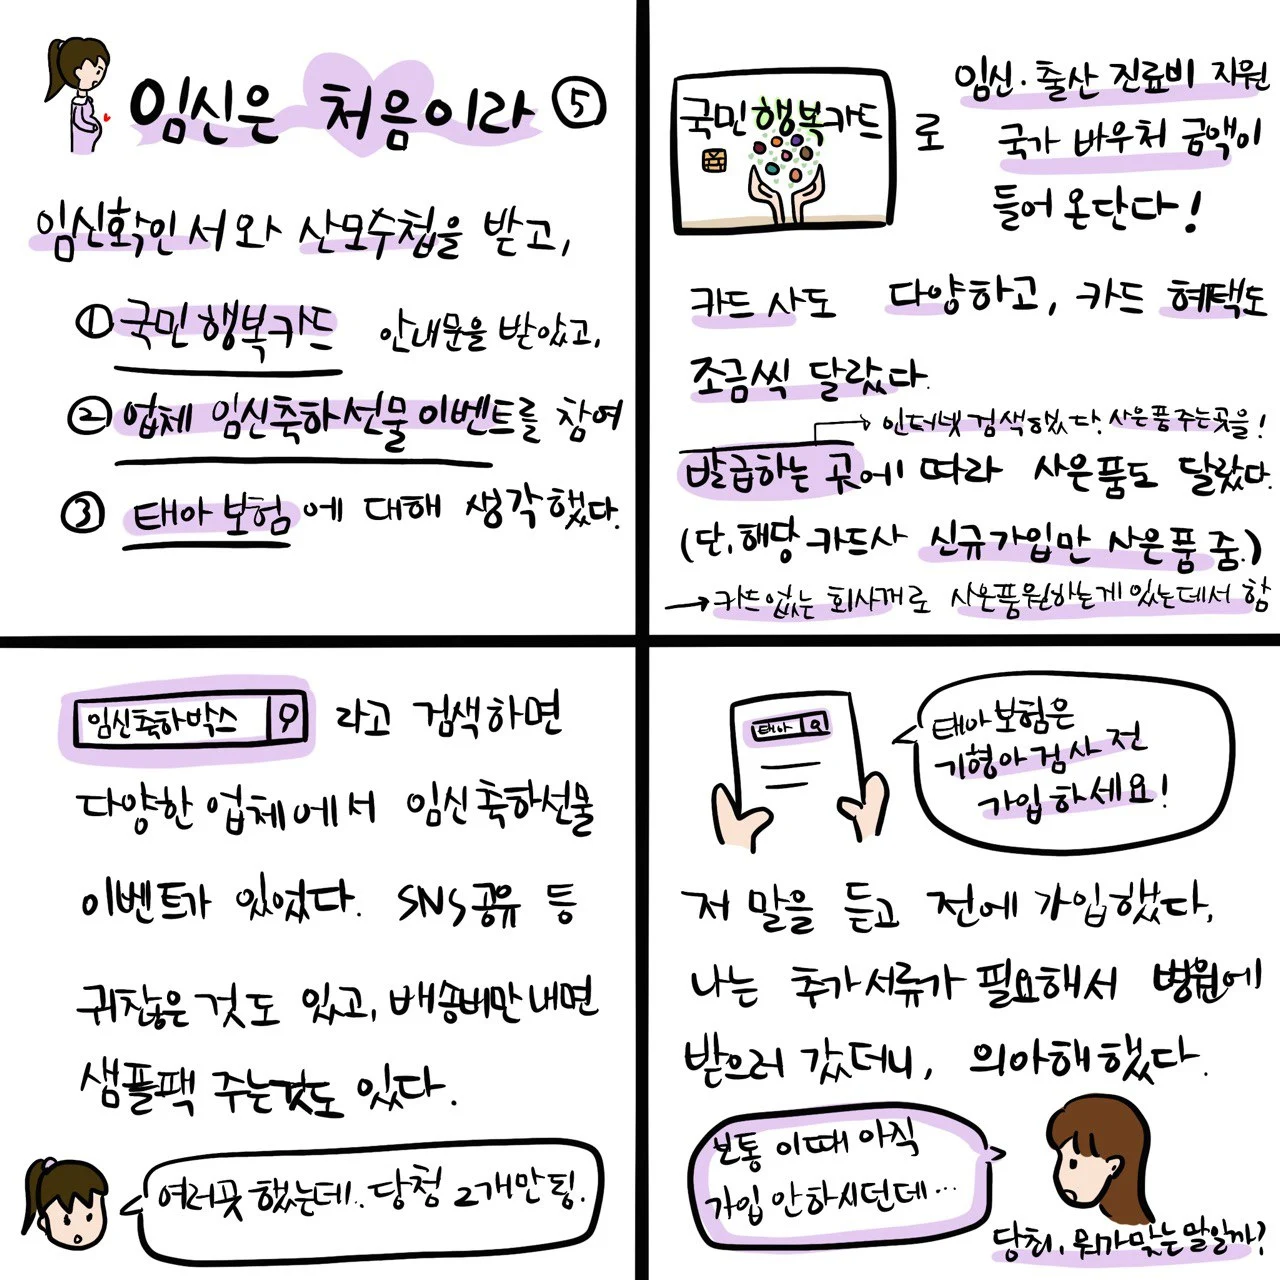 임신은 처음이라 ⑤
임신확인서와 산모수첩을 받고,
① 국민행복카드 안내문을 받았고,
② 업체 임신축하선물이벤트를 참여
③ 태아보험에 대해 생각했다.
국민행복카드
로
임신·출산 진료비 지원
국가 바우처 금액이
들어온단다!
카드사도 다양하고, 카드 혜택도
조금씩 달랐다.
→ 인터넷 검색했다. 사은품주는곳을!
발급하는 곳에 따라 사은품도 달랐다.
(단, 해당 카드사 신규가입만 사은품 줌.)
→ 카드없는 회사꺼로 사은품원하는게있는데서 함
임신축하박스
라고 검색하면
다양한 업체에서 임신축하선물
이벤트가 있었다. SNS공유 등
귀찮은 것도 있고, 배송비만 내면
샘플팩 주는것도 있다.
여러곳 했는데.. 당첨 2개만 됨.
태아
태아보험은
기형아검사 전
가입하세요!
저 말을 듣고 전에 가입했다,
나는 추가서류가 필요해서 병원에
받으러 갔더니, 의아해했다.
보통 이때 아직
가입 안하시던데…
당최, 뭐가맞는말일까?